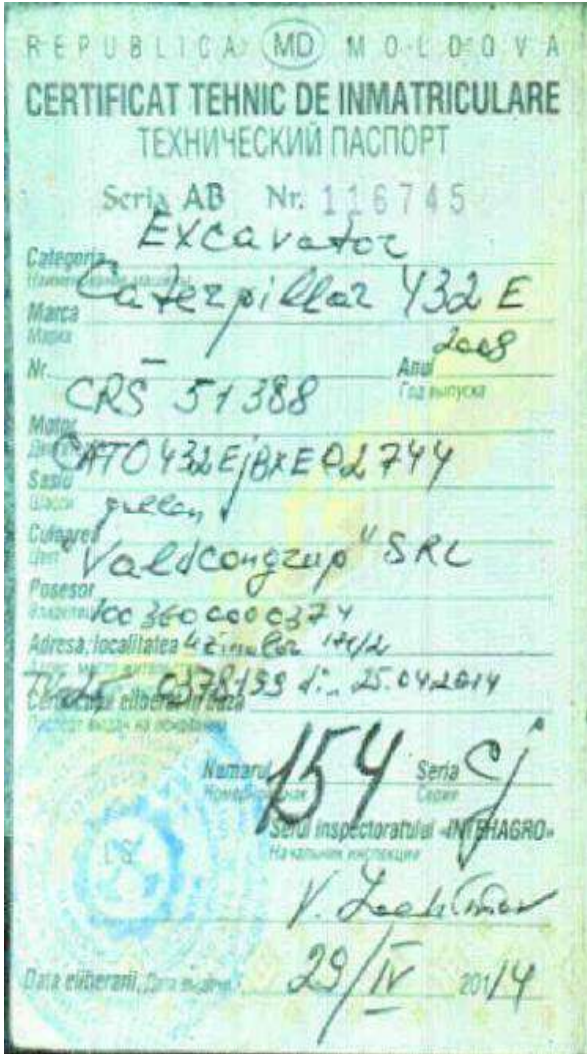 REPUBLICA MD MOLDOVA
CERTIFICAT TEHNIC DE INMATRICULARE
ТЕХНИЧЕСКИЙ ПАСПОРТ
Seria AB Nr. 116745
Excavator
Categoria
Наименование машины
Caterpillar 432 E
Marca
Марка
Nr. — Anul 2008
Год выпуска
CRS 51388
Motor
CAT0432EjBXE02744
Sasiu
Шасси
Culoarea
Цвет
"Valdcongrup" SRL
Posesor
Владелец
1003600000374
Adresa, localitatea 124/2
0378199 din 25.04.2014
Certificatul eliberat in baza
Паспорт выдан на основании
Numarul 154 Seria Cj
Серия
Seful inspectoratului «INTEHAGRO»
Начальник инспекции
L.S.
V.
Data eliberarii, Дата выдачи 29/IV 2014